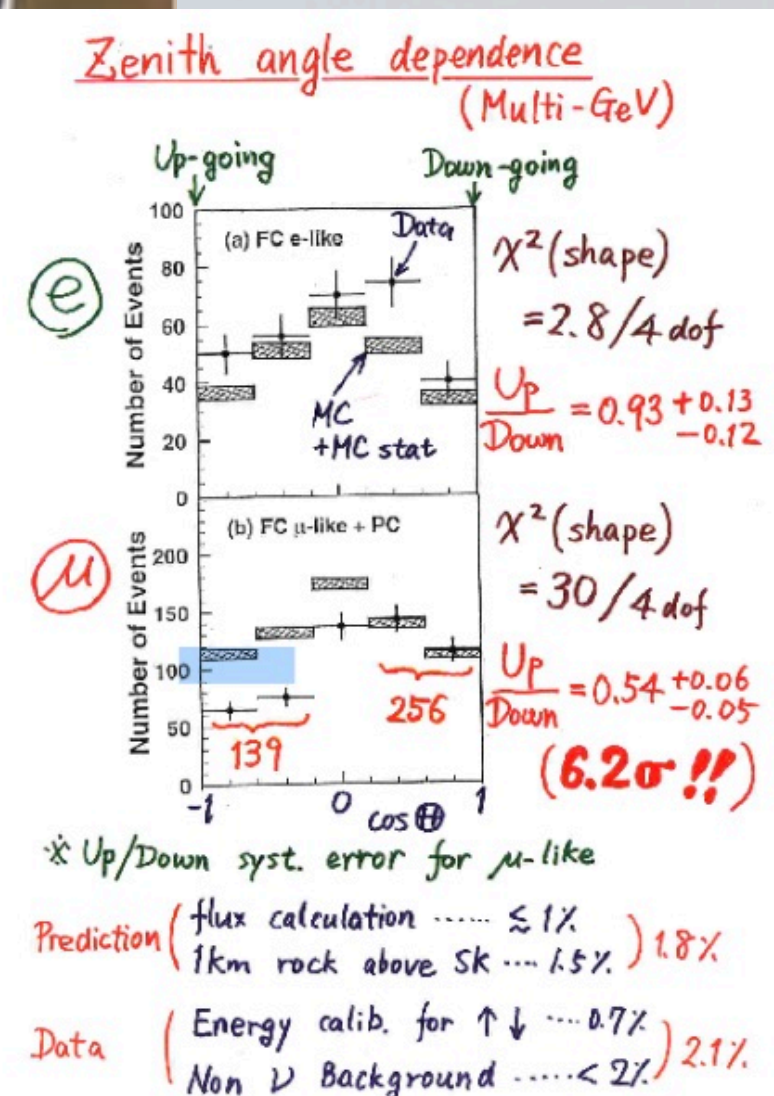 Zenith angle dependence
(Multi-GeV)
Up-going
Down-going
e
Number of Events
100
80
60
40
20
0
(a) FC e-like
Data
MC
+MC stat
χ² (shape)
= 2.8/4 dof
Up/Down = 0.93 +0.13 -0.12
μ
Number of Events
200
150
100
50
0
(b) FC μ-like + PC
139
256
-1
0
1
cos Θ
χ² (shape)
= 30/4 dof
Up/Down = 0.54 +0.06 -0.05
(6.2σ !!)
※ Up/Down syst. error for μ-like
Prediction ( flux calculation ...... ≲ 1%
1km rock above SK .... 1.5% ) 1.8%
Data ( Energy calib. for ↑ ↓ .... 0.7%
Non ν Background ...... < 2% ) 2.1%